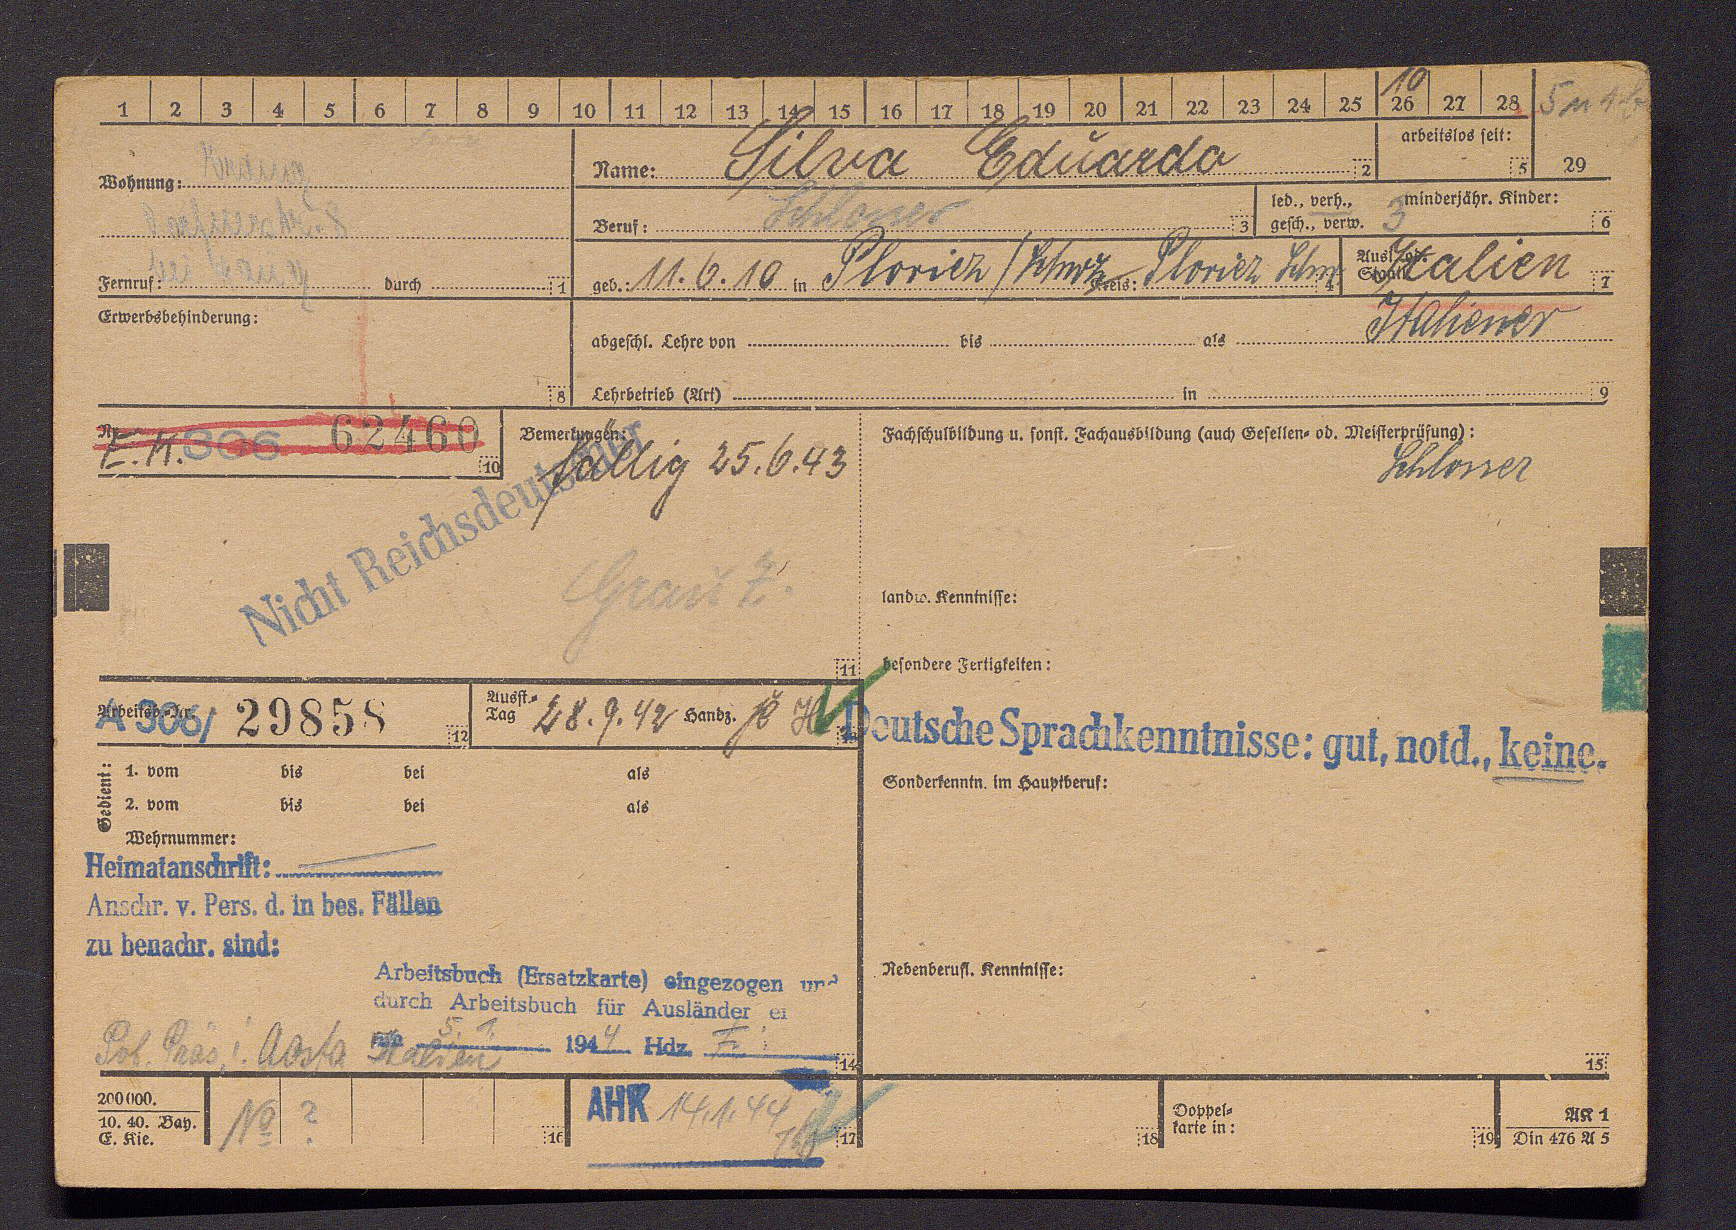 1 2 3 4 5 6 7 8 9 10 11 12 13 14 15 16 17 18 19 20 21 22 23 24 25 26 27 28
10
Name: Silva Eduardo 2
arbeitslos seit: 5
29
Wohnung:
Beruf: Schlosser 3
led., verh.,
gesch., verw.
3 minderjähr. Kinder: 6
Fernruf: durch 1
geb.: 11.6.10 in Floriez / Schwz Kreis: Floriez Schw. 4
Ausl. od.
Staat: Italien 7
Italiener
Erwerbsbehinderung:
8
abgeschl. Lehre von bis als
Lehrbetrieb (Art) in 9
Nr.
E.K. 306 62460 10
Bemerkungen:
fällig 25.6.43
Nicht Reichsdeutscher
11
Fachschulbildung u. sonst. Fachausbildung (auch Gesellen- od. Meisterprüfung):
Schlosser
landw. Kenntnisse:
besondere Fertigkeiten:
Arbeitsb.-Nr.
A 306/ 29858 12
Ausst.-
Tag 28.9.42 Handz. 13
Deutsche Sprachkenntnisse: gut, notd., keine.
Sonderkenntn. im Hauptberuf:
Gedient:
1. vom bis bei als
2. vom bis bei als
Wehrnummer:
Heimatanschrift:
Anschr. v. Pers. d. in bes. Fällen
zu benachr. sind:
Arbeitsbuch (Ersatzkarte) eingezogen und
durch Arbeitsbuch für Ausländer
5. 1. 1944 Hdz.
Pol. Präs. i. Aosta Italien
14
Nebenberufl. Kenntnisse:
15
200000.
10. 40. Bay.
E. Kie.
No ?
16
AHK 14.1.44
17
18
Doppel-
karte in:
19
AK 1
Din 476 A 5